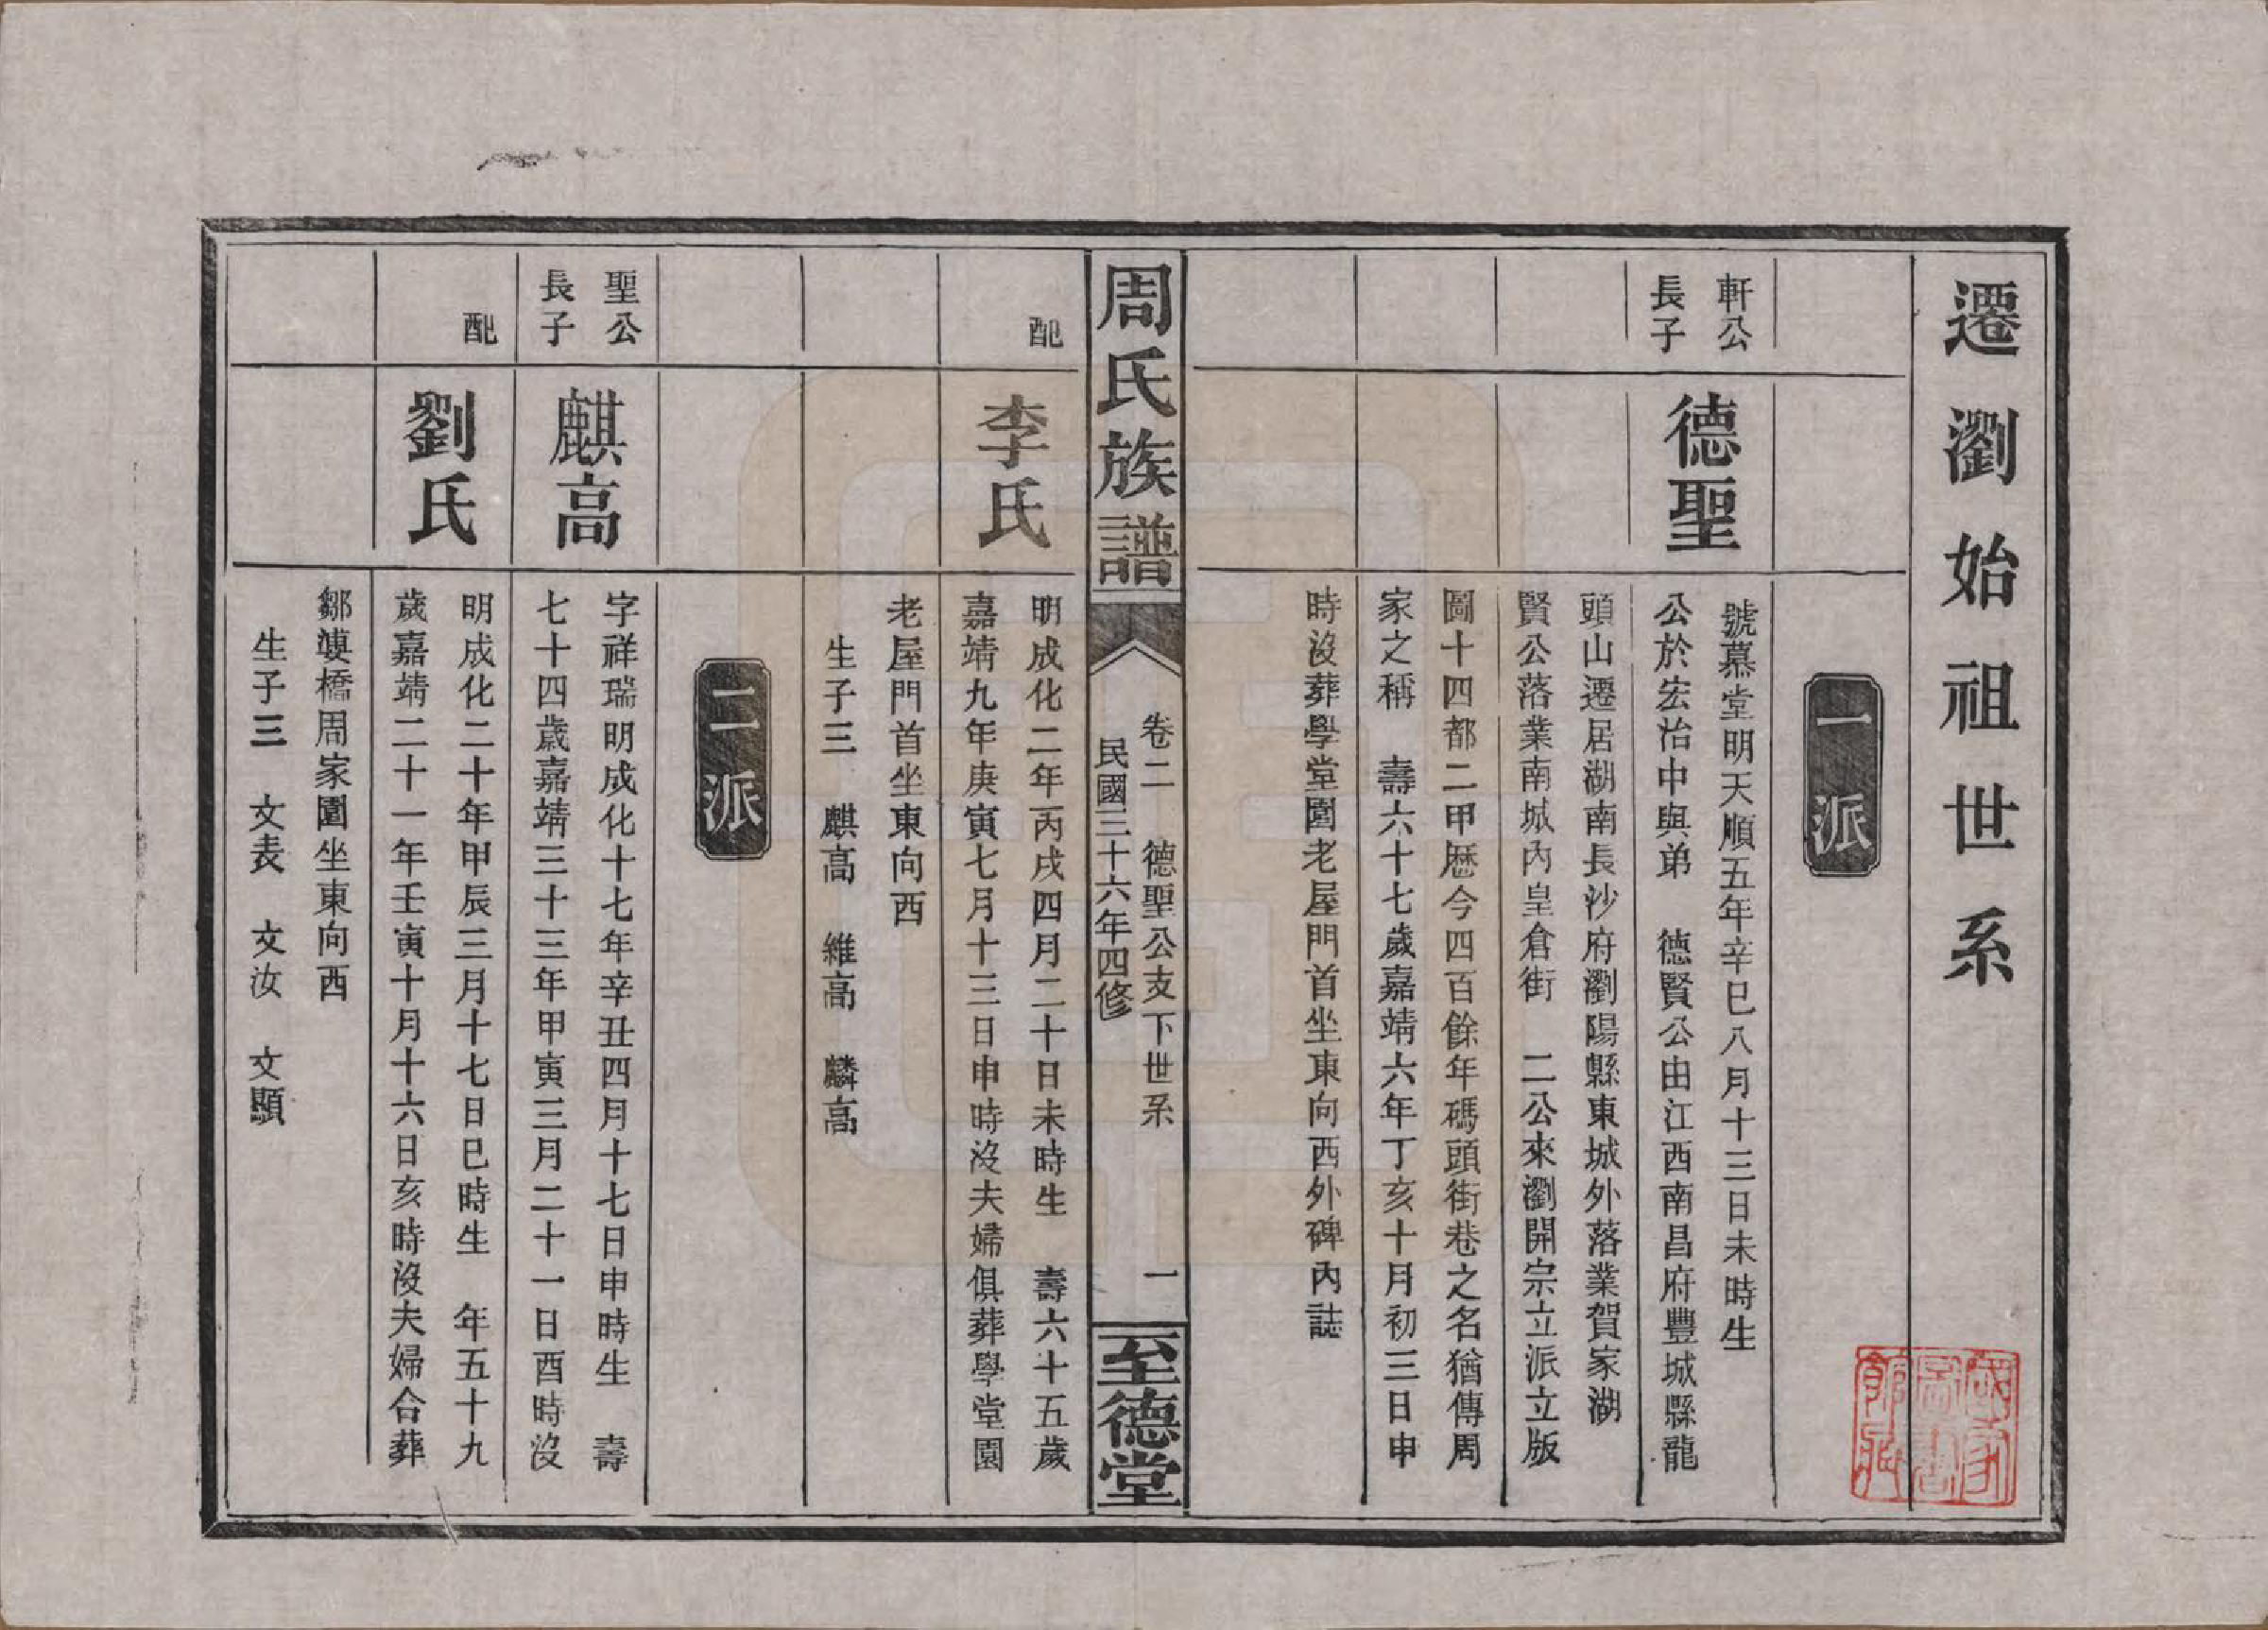 遷瀏始祖世系
一派
軒公
長子
德聖
號慕堂明天順五年辛巳八月十三日未時生
公於宏治中與弟　德賢公由江西南昌府豐城縣龍
頭山遷居湖南長沙府瀏陽縣東城外落業賀家湖
賢公落業南城內皇倉街　二公來瀏開宗立派立版
圖十四都二甲歷今四百餘年碼頭街巷之名猶傳周
家之稱　壽六十七歲嘉靖六年丁亥十月初三日申
時沒葬學堂園老屋門首坐東向西外碑內誌
周氏族譜
卷二　德聖公支下世系　一
民國三十六年四修
至德堂
配
李氏
明成化二年丙戌四月二十日未時生　壽六十五歲
嘉靖九年庚寅七月十三日申時沒夫婦俱葬學堂園
老屋門首坐東向西
生子三　麒高　維高　麟高
二派
聖公
長子
麒高
字祥瑞明成化十七年辛丑四月十七日申時生　壽
七十四歲嘉靖三十三年甲寅三月二十一日酉時沒
配
劉氏
明成化二十年甲辰三月十七日巳時生　年五十九
歲嘉靖二十一年壬寅十月十六日亥時沒夫婦合葬
鄒橋周家園坐東向西
生子三　文表　文汝　文顯
國家圖書館藏